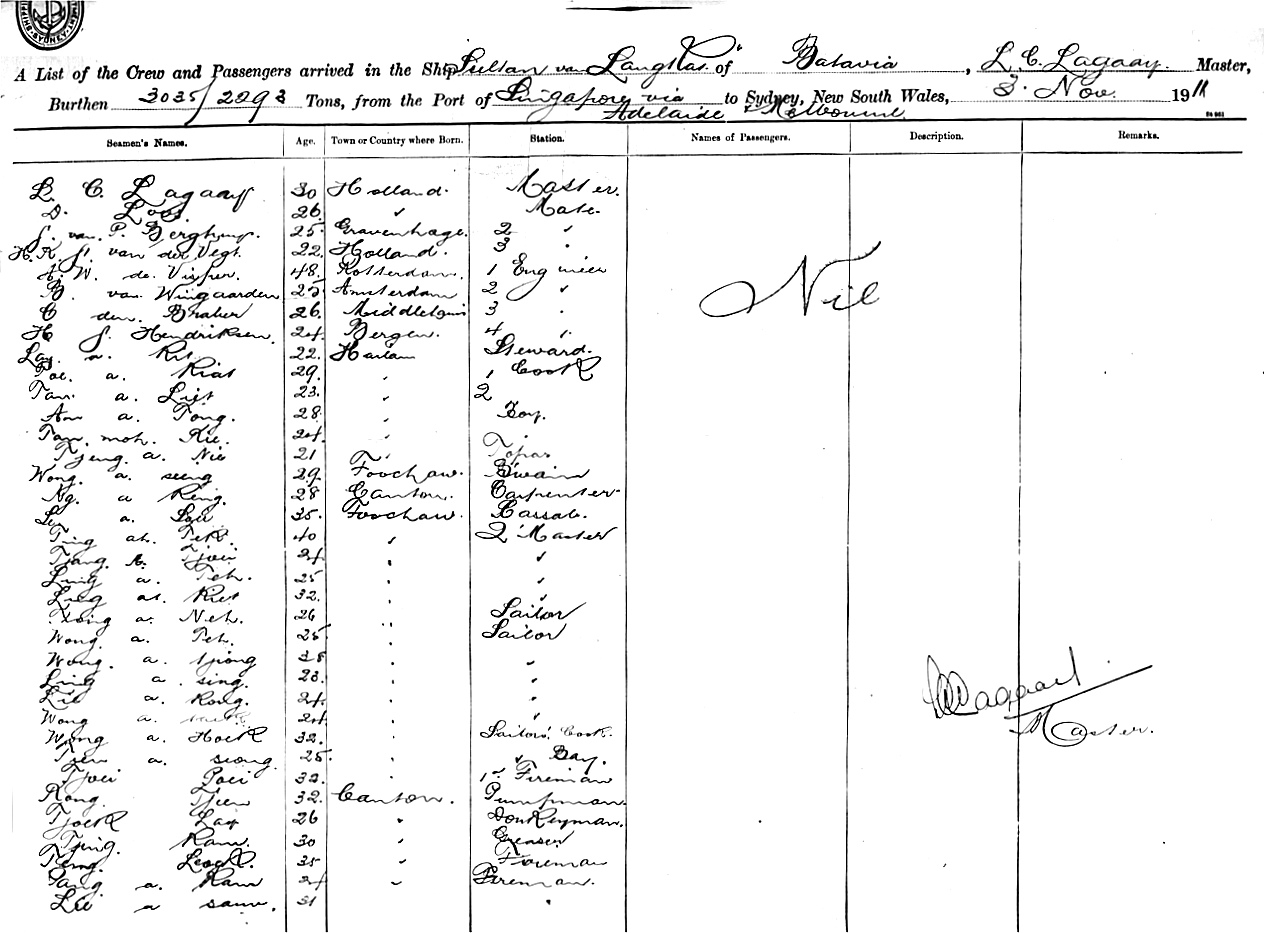 SHIPPING SYDNEY
A List of the Crew and Passengers arrived in the Ship Sultan van Langkat of Batavia, L. C. Lagaay Master,
Burthen 3035/2293 Tons, from the Port of Singapore via to Sydney, New South Wales, 3. Nov. 1911
Adelaide & Melbourne
Seamen's Names. Age. Town or Country where Born. Station. Names of Passengers. Description. Remarks.
L. C. Lagaay 30 Holland. Master.
D. Loos. 26 " Mate.
van P. 25 Gravenhage. 2 "
H. K. J. van der Vegt. 22 Holland. 3 "
W. de Visser. 48. Rotterdam. 1 Engineer
B. van Wingaarden 25 Amsterdam 2 "
C den 26. 3 "
H J. Hendriksen. 24 Bergen. 4 "
Lay a. 22. Steward.
a. Kiat 29. " 1 Cook
Tan a. 23. " 2
a. Tong. 28 " Boy.
Tan moh. Kie. 24 "
Tjeng. a. Nie 21 " Topas
Wong a. seeng 29. Foochaw.
Ng. a Keng. 28 Canton. Carpenter
a. 35. Foochaw. Cassab.
Ting ah. Tek. 40 " Q' Master
Tjang. A. Tjoei 24 " "
Ling a. Teh. 25 " "
Ling ah 32. " "
a. Neh. 26 " Sailor
Wong. a. Teh. 25 " Sailor
Wong. a. tjiong 38 " "
Ling a. sing. 23. " "
Lie a. Kong. 24. " "
Wong a. 24 " "
Wong a. Hock 32. " Sailors' Cook.
a. siong. 25. " " Boy.
Tjoei Poei 32. " 1st Fireman
Kong Tjien 32. Canton. Pumpman.
Tjoek Lay 26 " Donkeyman.
Tjing. Kam. 30 " Greaser
Teng. 35 " Foreman
Tang a. Kam 24 " Fireman.
Lie a sam. 31 "
Nil
L C Lagaay
Master.